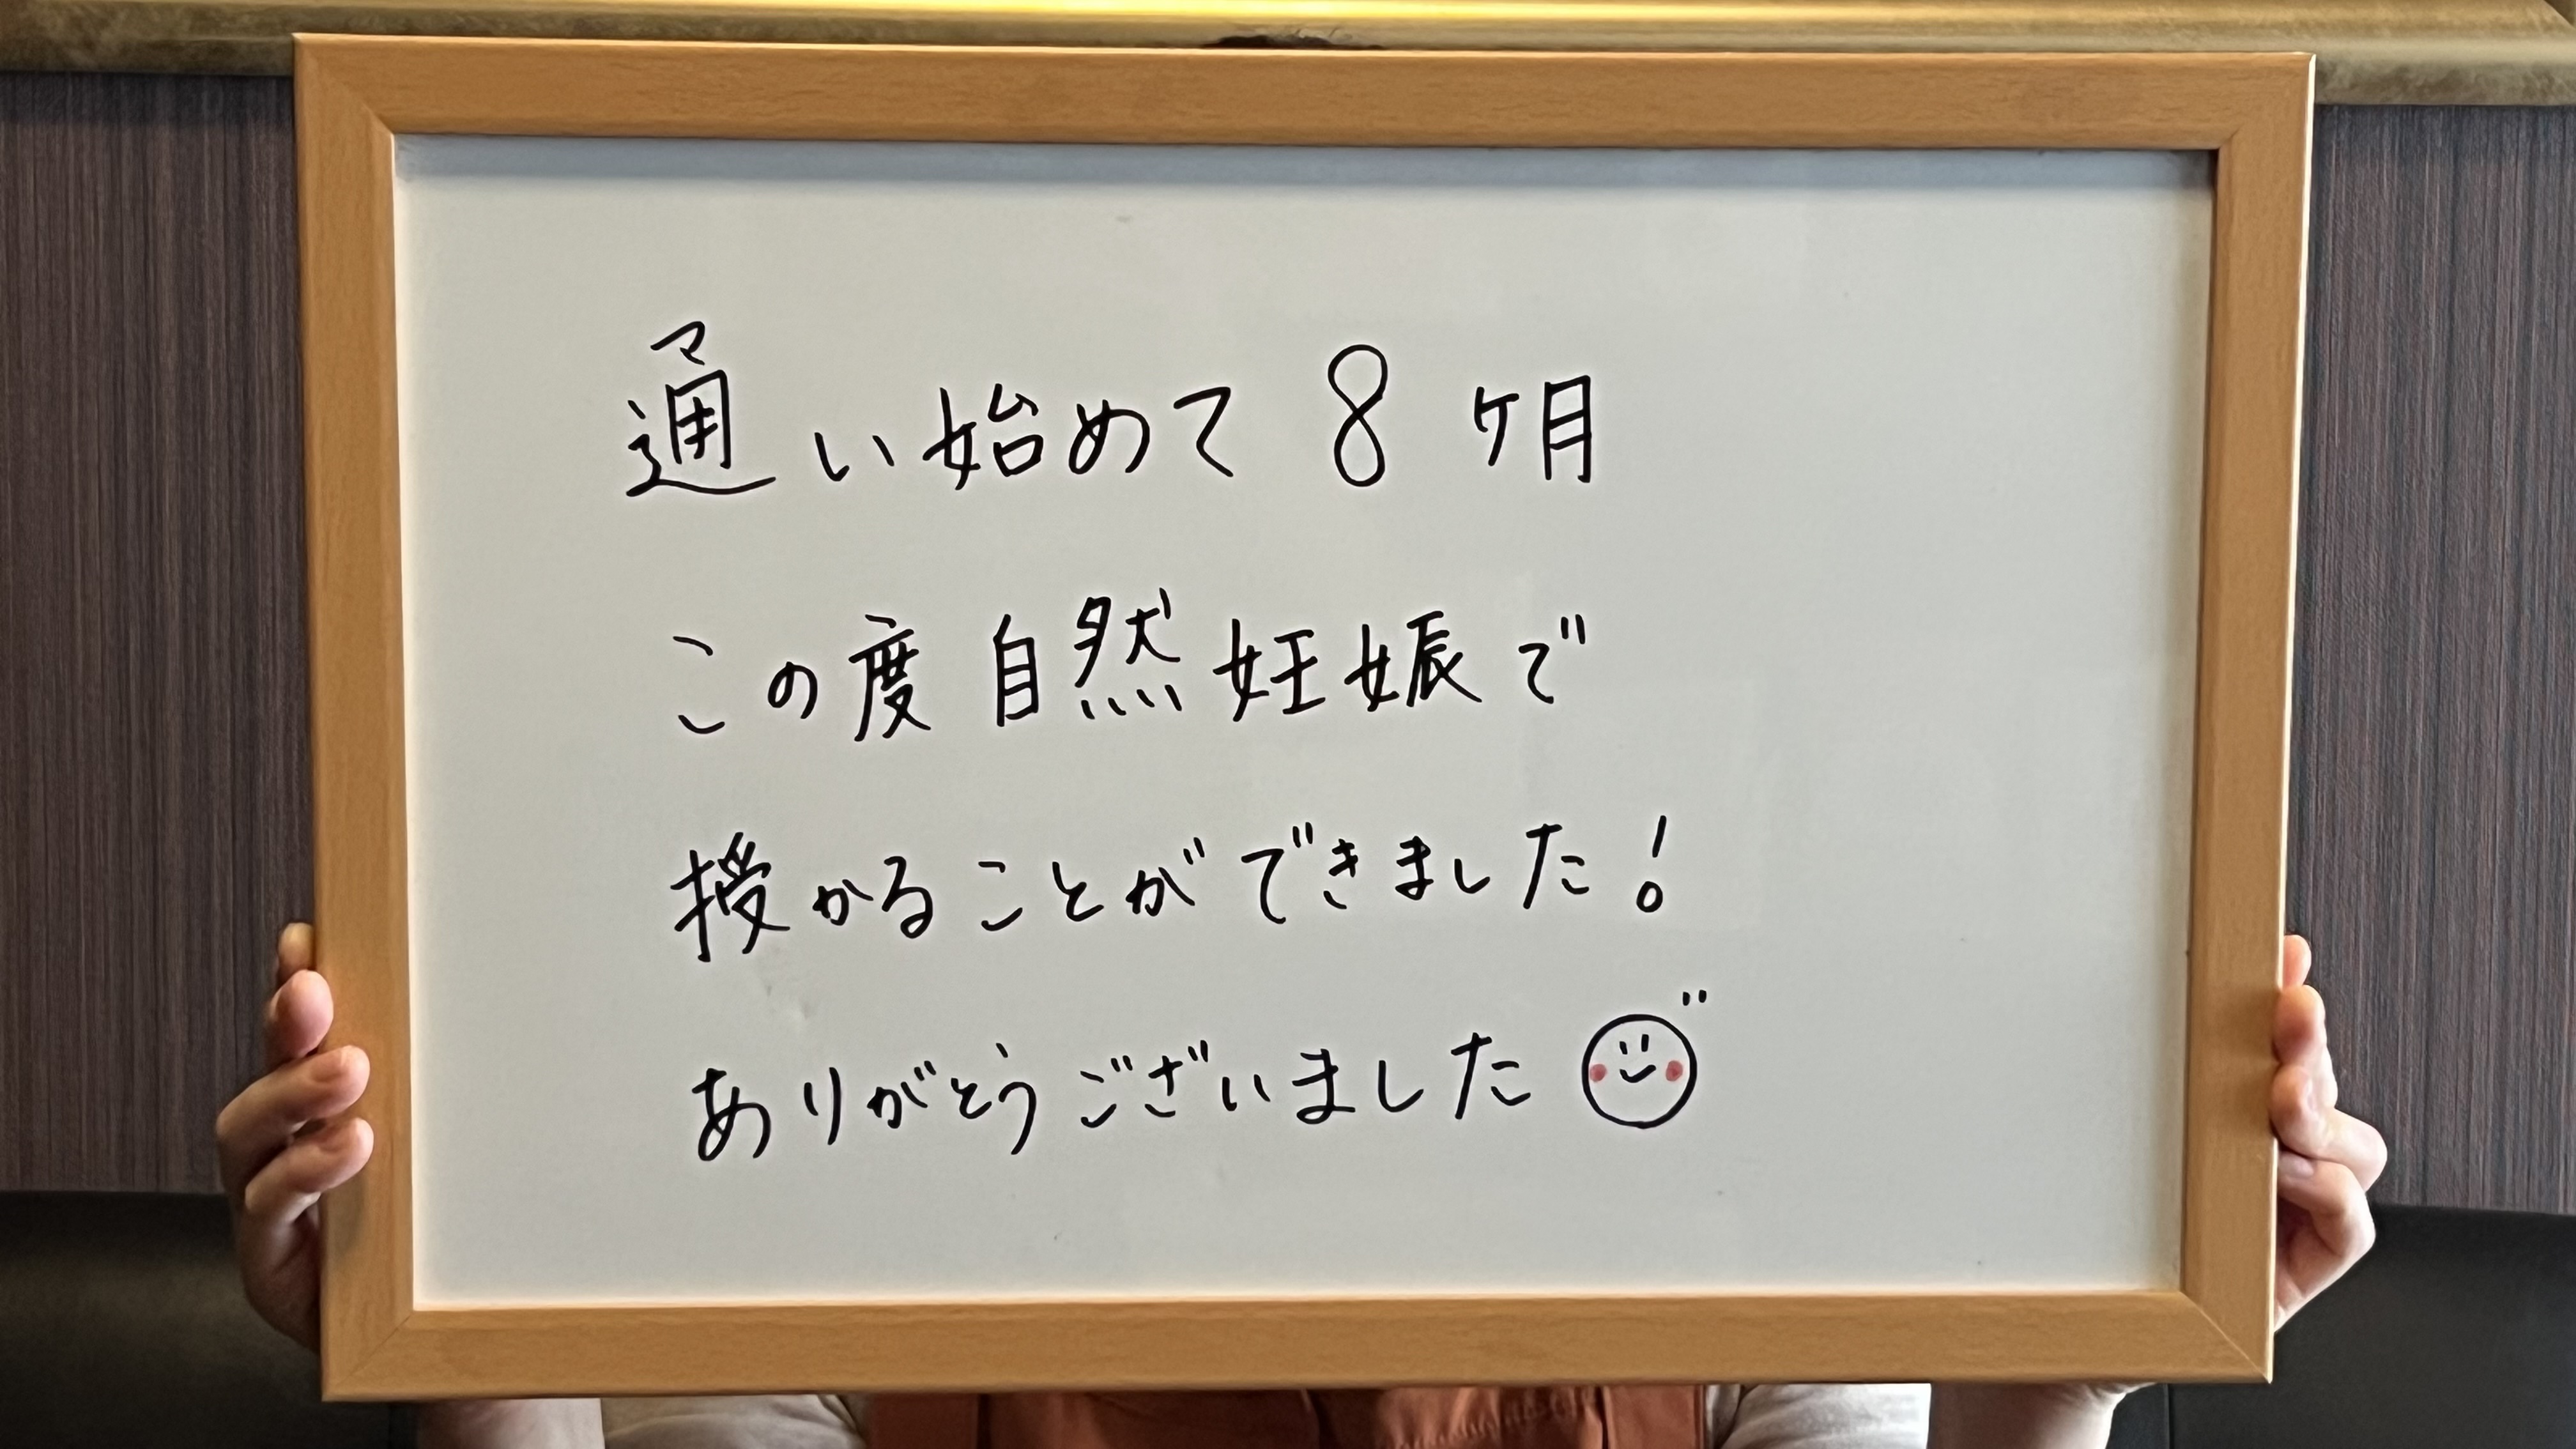 通い始めて 8 ヶ月
この度 自然妊娠で
授かることができました！
ありがとうございました